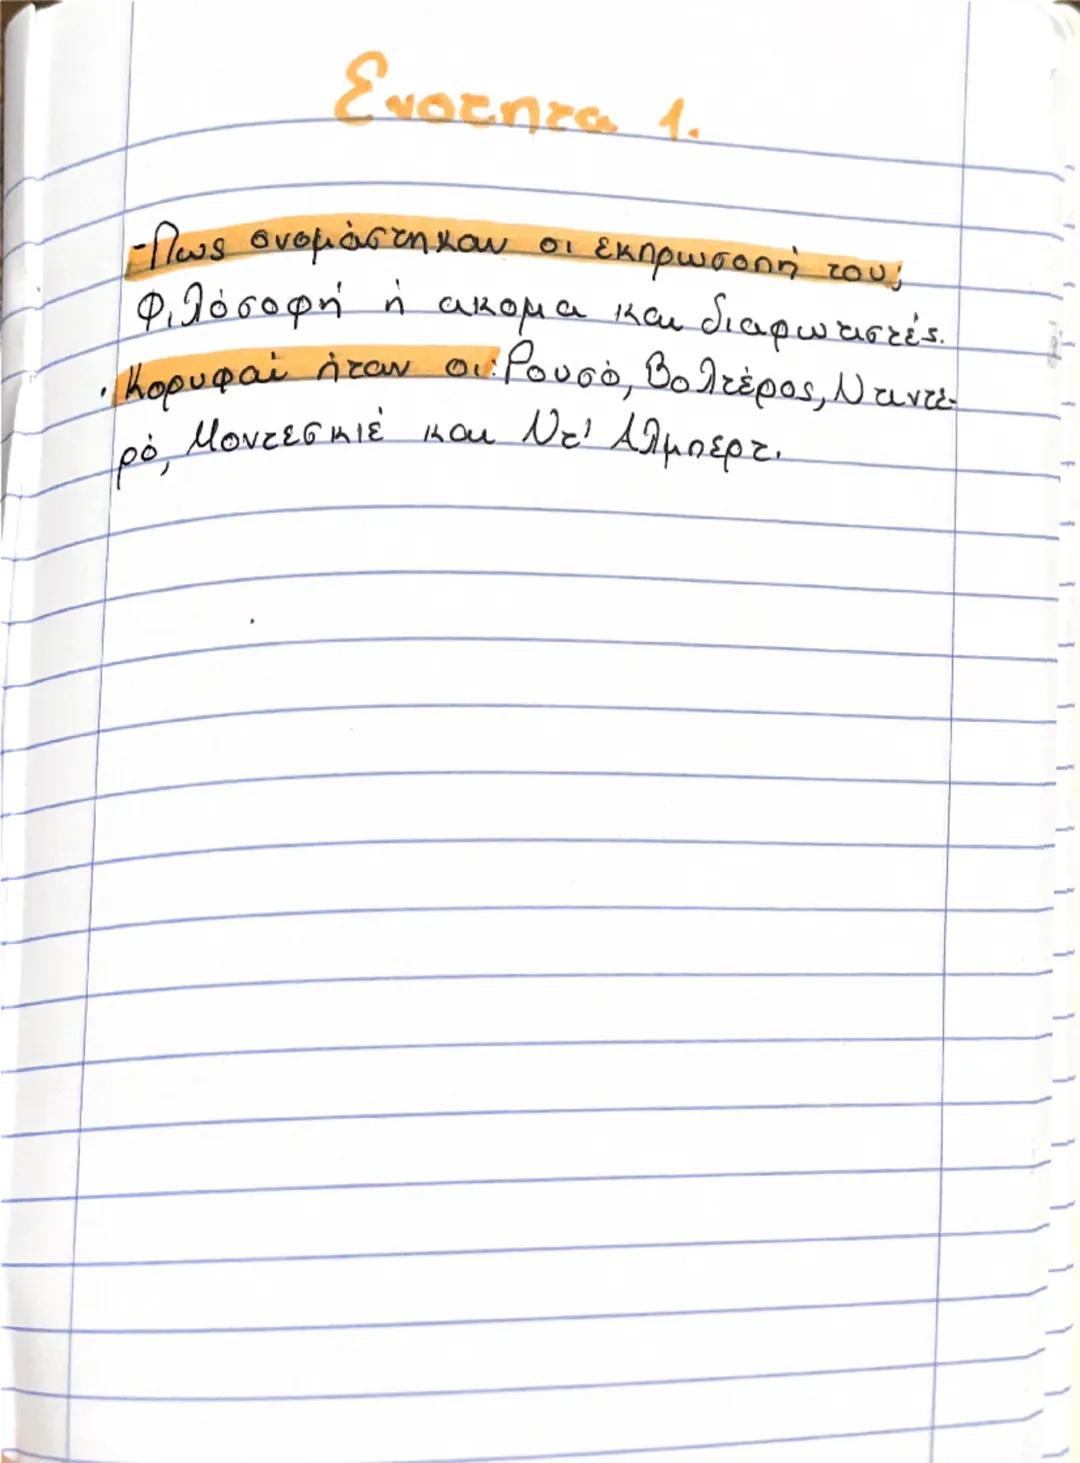 Ενοτητα 1.
-Πως ονομάστηκαν οι εκπρωσοπή του;
Φιλόσοφή ή ακομα και διαφωτιστές.
· Κορυφαί ήταν οι: Ρουσό, Βολτέρος, Ντιντε-
ρό, Μοντεσκιέ και Ντ' Αλμπερτ.